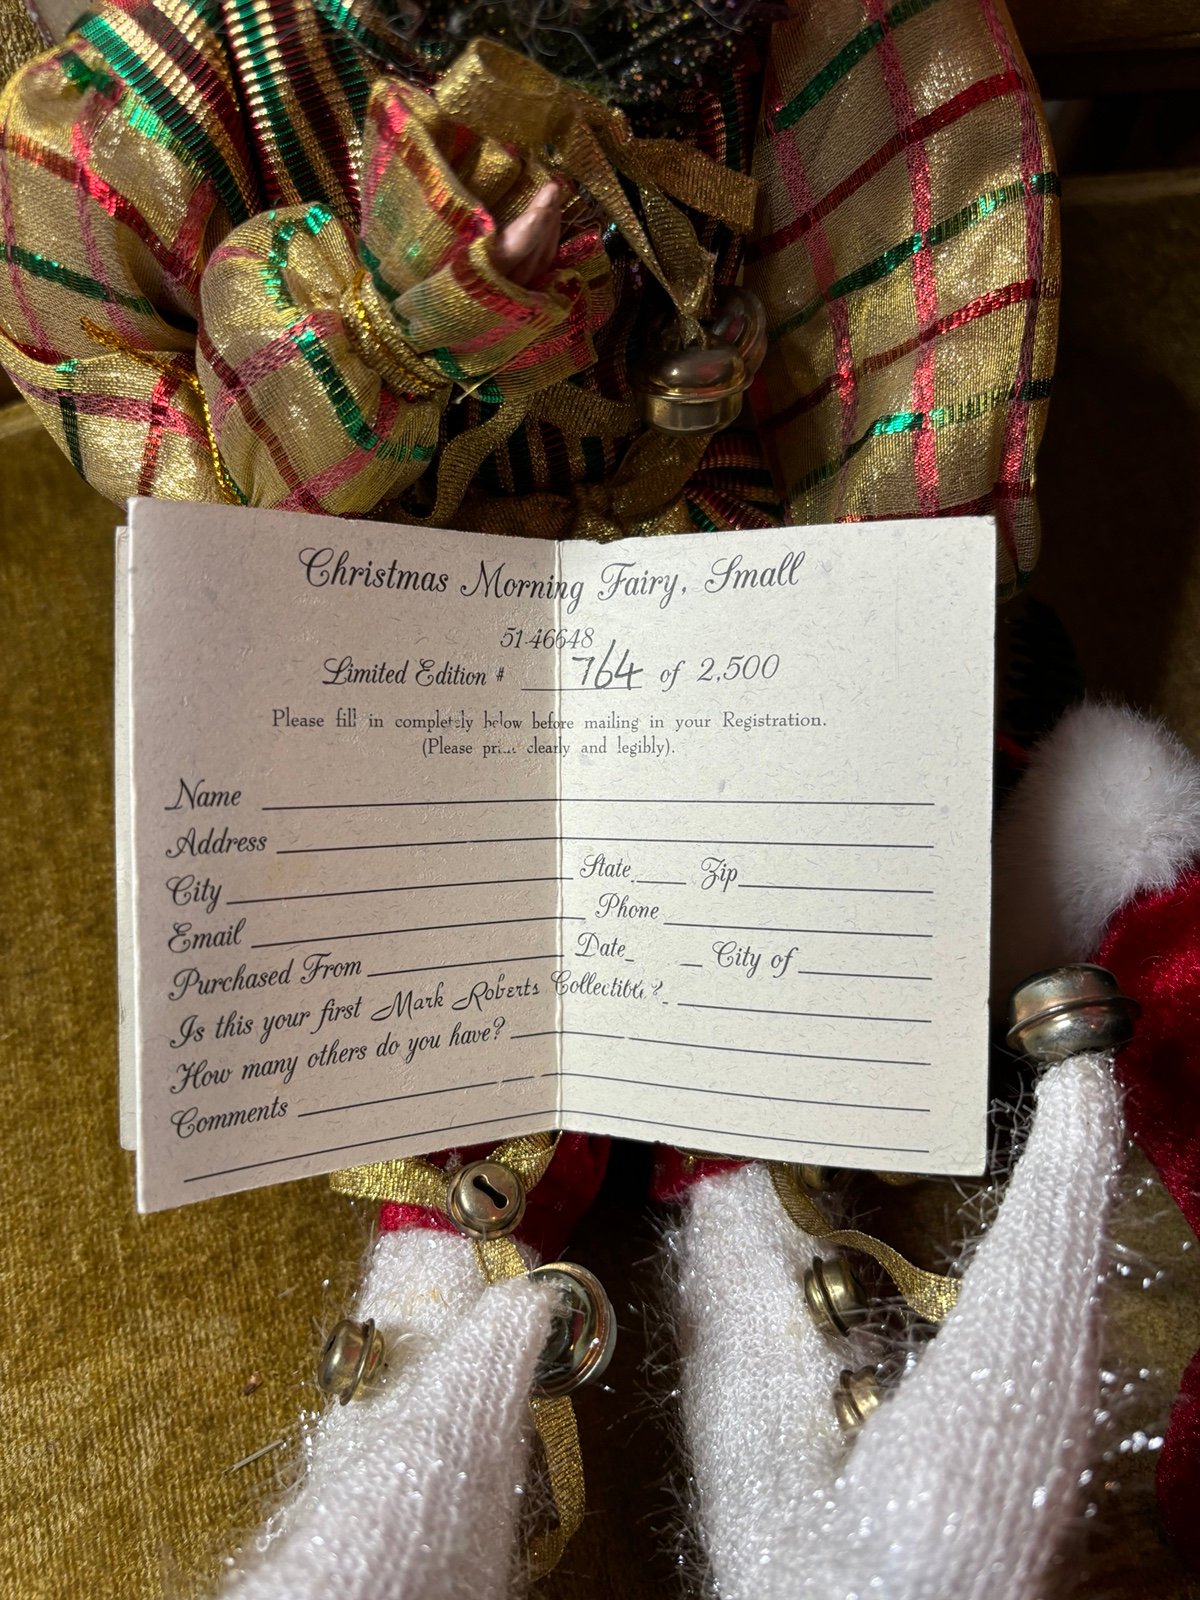 Christmas Morning Fairy, Small
51-46648
Limited Edition # 764 of 2,500
Please fill in completely below before mailing in your Registration.
(Please print clearly and legibly).
Name
Address
City State Zip
Email Phone
Purchased From Date City of
Is this your first Mark Roberts Collectible?
How many others do you have?
Comments